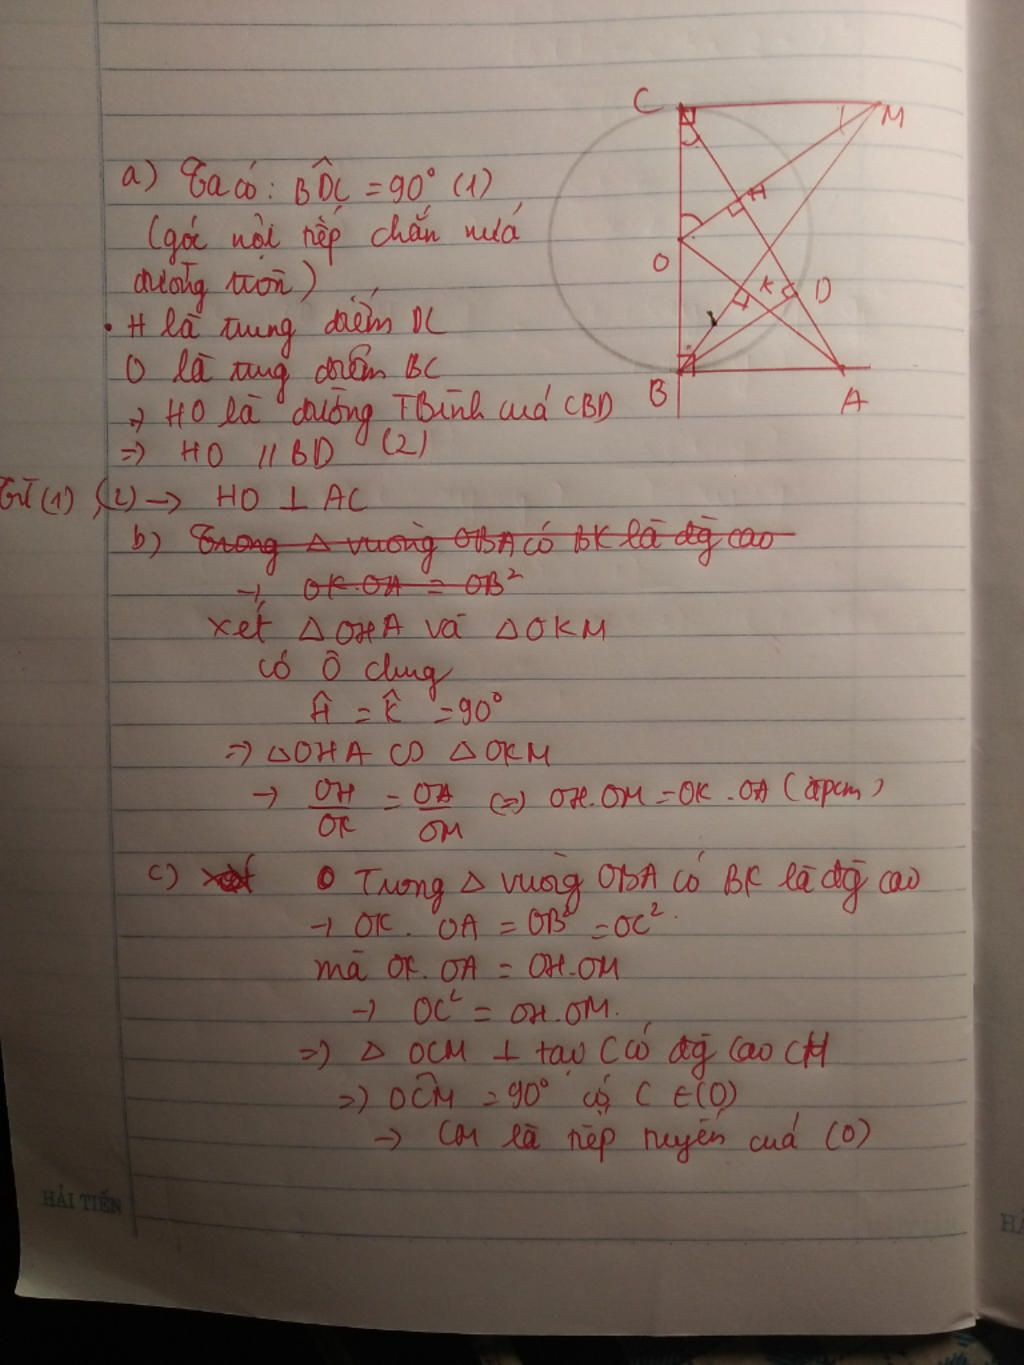 C
M
a) Ta có: BDC = 90° (1)
(góc nội tiếp chắn nửa
đường tròn)
H
O
K
D
B
A
• H là trung điểm DC
O là trung điểm BC
=> HO là đường TBình của CBD
=> HO // BD (2)
Từ (1), (2) -> HO ⊥ AC
b) Trong Δ vuông OBA có BK là đg cao
-> OK.OA = OB²
Xét Δ OHA và Δ OKM
có Ô chung
Ĥ = K̂ = 90°
=> ΔOHA ∽ ΔOKM
-> OH/OK = OA/OM <=> OH.OM = OK.OA (đpcm)
c) Trong Δ vuông OBA có BK là đg cao
-> OK. OA = OB² = OC².
mà OK.OA = OH.OM
-> OC² = OH.OM.
=> Δ OCM ⊥ tại C có đg cao CH
=> OCM = 90° có C ∈ (O)
-> CM là tiếp tuyến của (O)
HẢI TIẾN